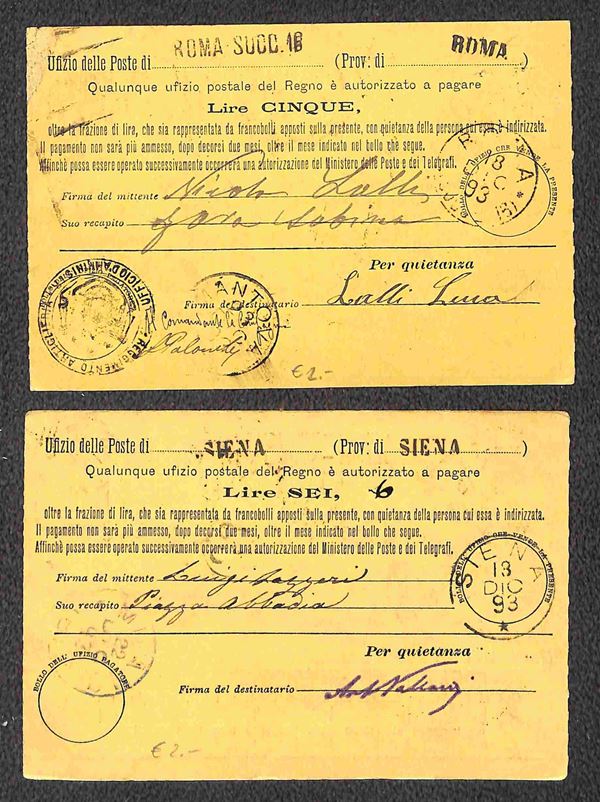 Ufizio delle Poste di ROMA SUCC. 16 (Prov: di ROMA )
Qualunque ufizio postale del Regno è autorizzato a pagare
Lire CINQUE,
oltre la frazione di lira, che sia rappresentata da francobolli apposti sulla presente, con quietanza della persona cui essa è indirizzata.
Il pagamento non sarà più ammesso, dopo decorsi due mesi, oltre il mese indicato nel bollo che segue.
Affinchè possa essere operato successivamente occorrerà una autorizzazione del Ministero delle Poste e dei Telegrafi.
Firma del mittente Nicola Lalli
Suo recapito Sabina
BOLLO DELL' UFIZIO CHE VENDE LA PRESENTE
ROMA
Per quietanza
Firma del destinatario Lalli Luca
Il Comandante
REGGIMENTO ARTIGLIERIA
UFFICIO D'AMMINISTRAZIONE
MANTOVA
€ 2.-
Ufizio delle Poste di SIENA (Prov: di SIENA )
Qualunque ufizio postale del Regno è autorizzato a pagare
Lire SEI, 6
oltre la frazione di lira, che sia rappresentata da francobolli apposti sulla presente, con quietanza della persona cui essa è indirizzata.
Il pagamento non sarà più ammesso, dopo decorsi due mesi, oltre il mese indicato nel bollo che segue.
Affinchè possa essere operato successivamente occorrerà una autorizzazione del Ministero delle Poste e dei Telegrafi.
Firma del mittente Luigi Lazzeri
Suo recapito Piazza Abbadia
BOLLO DELL' UFIZIO CHE VENDE LA PRESENTE
SIENA
13
DIC
93
Per quietanza
BOLLO DELL' UFIZIO PAGATORE
Firma del destinatario
€ 2.-